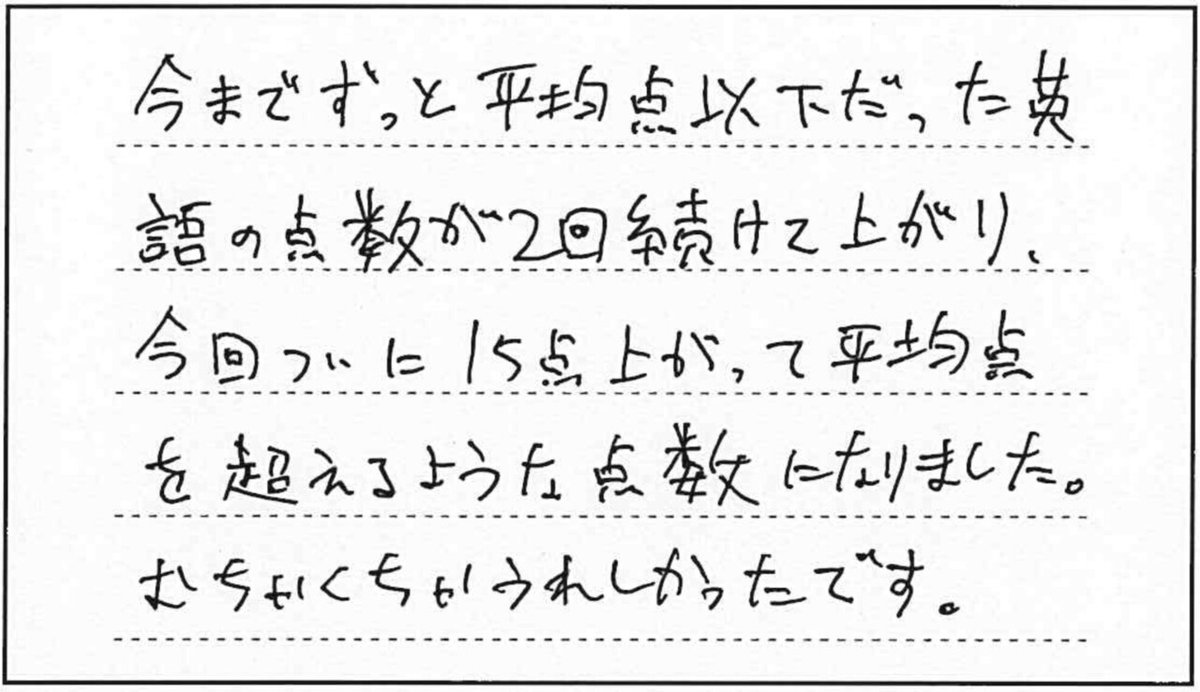 今までずっと平均点以下だった英
語の点数が2回続けて上がり、
今回ついに15点上がって平均点
を超えるような点数になりました。
むちゃくちゃうれしかったです。